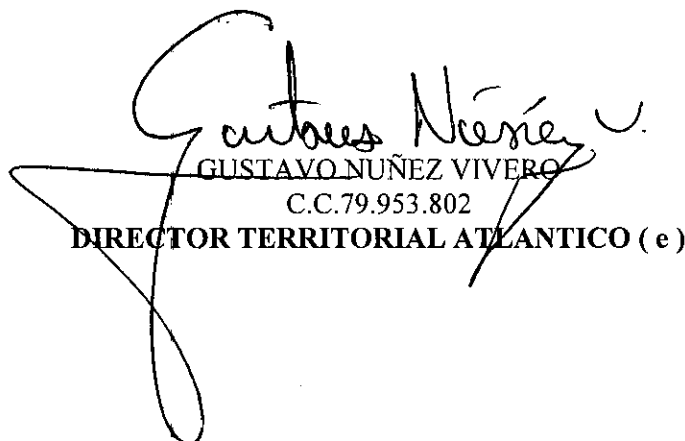 Gustavo Núñez V.
GUSTAVO NUÑEZ VIVERO
C.C.79.953.802
DIRECTOR TERRITORIAL ATLANTICO ( e )